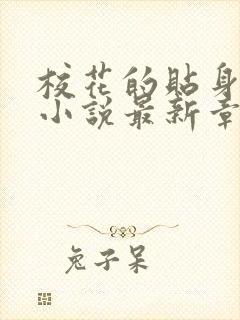 校花的貼身
小說最新章
兔子呆